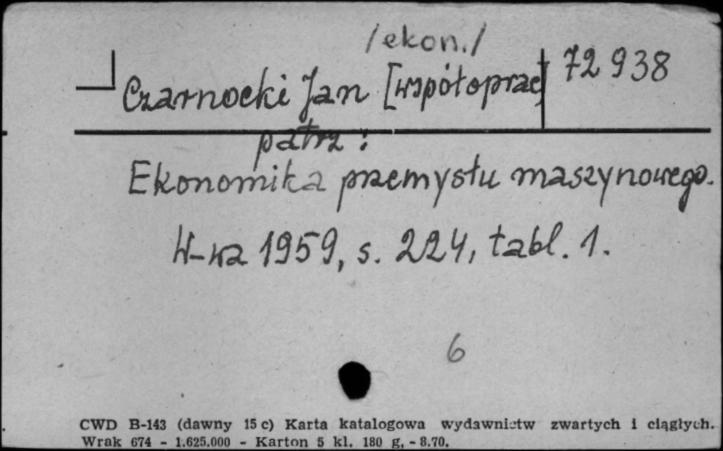 /ekon./
Czarnocki Jan [współoprac] 72 938
patrz:
Ekonomika przemysłu maszynowego.
W-wa 1959, s. 224, tabl. 1.
6
CWD B-143 (dawny 15 c) Karta katalogowa wydawnictw zwartych i ciągłych.
Wrak 674 - 1.625.000 - Karton 5 kl. 180 g. - 8.70.